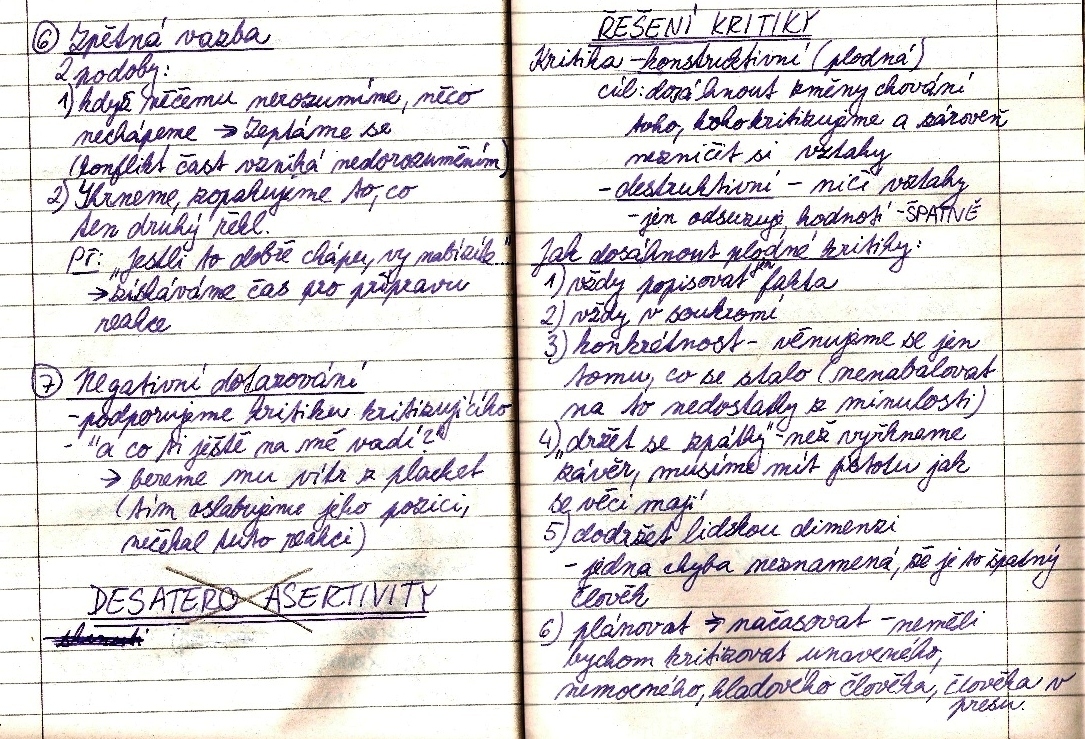 6 Zpětná vazba
2 podoby:
1) když něčemu nerozumíme, něco
nechápeme → Zeptáme se
(konflikt část vzniká nedorozuměním)
2) Shrneme, zopakujeme to, co
ten druhý řekl.
PŘ: "Jestli to dobře chápu, vy nabízíte..."
→ získáváme čas pro přípravu
reakce
7 Negativní dotazování
- podporujeme kritiku kritizujícího
- "a co ti ještě na mě vadí?"
→ bereme mu vítr z plachet
(tím oslabujeme jeho pozici,
nečekal tuto reakci)
DESATERO ASERTIVITY
ŘEŠENÍ KRITIKY
Kritika - konstruktivní (plodná)
cíl: dosáhnout změny chování
toho, koho kritizujeme a zároveň
nezničit si vztahy
- destruktivní - ničí vztahy
- jen odsuzují, hodnotí - ŠPATNĚ
Jak dosáhnout plodné kritiky:
1) vždy popisovat jen fakta
2) vždy v soukromí
3) konkrétnost - věnujeme se jen
tomu, co se stalo (nenabalovat
na to nedostatky z minulosti)
4) "držet se zpátky" - než vyřkneme
závěr, musíme mít jistotu jak
se věci mají
5) dodržet lidskou dimenzi
- jedna chyba neznamená, že je to špatný
člověk
6) plánovat → načasovat - neměli
bychom kritizovat unaveného,
nemocného, hladového člověka, člověka v
presu.